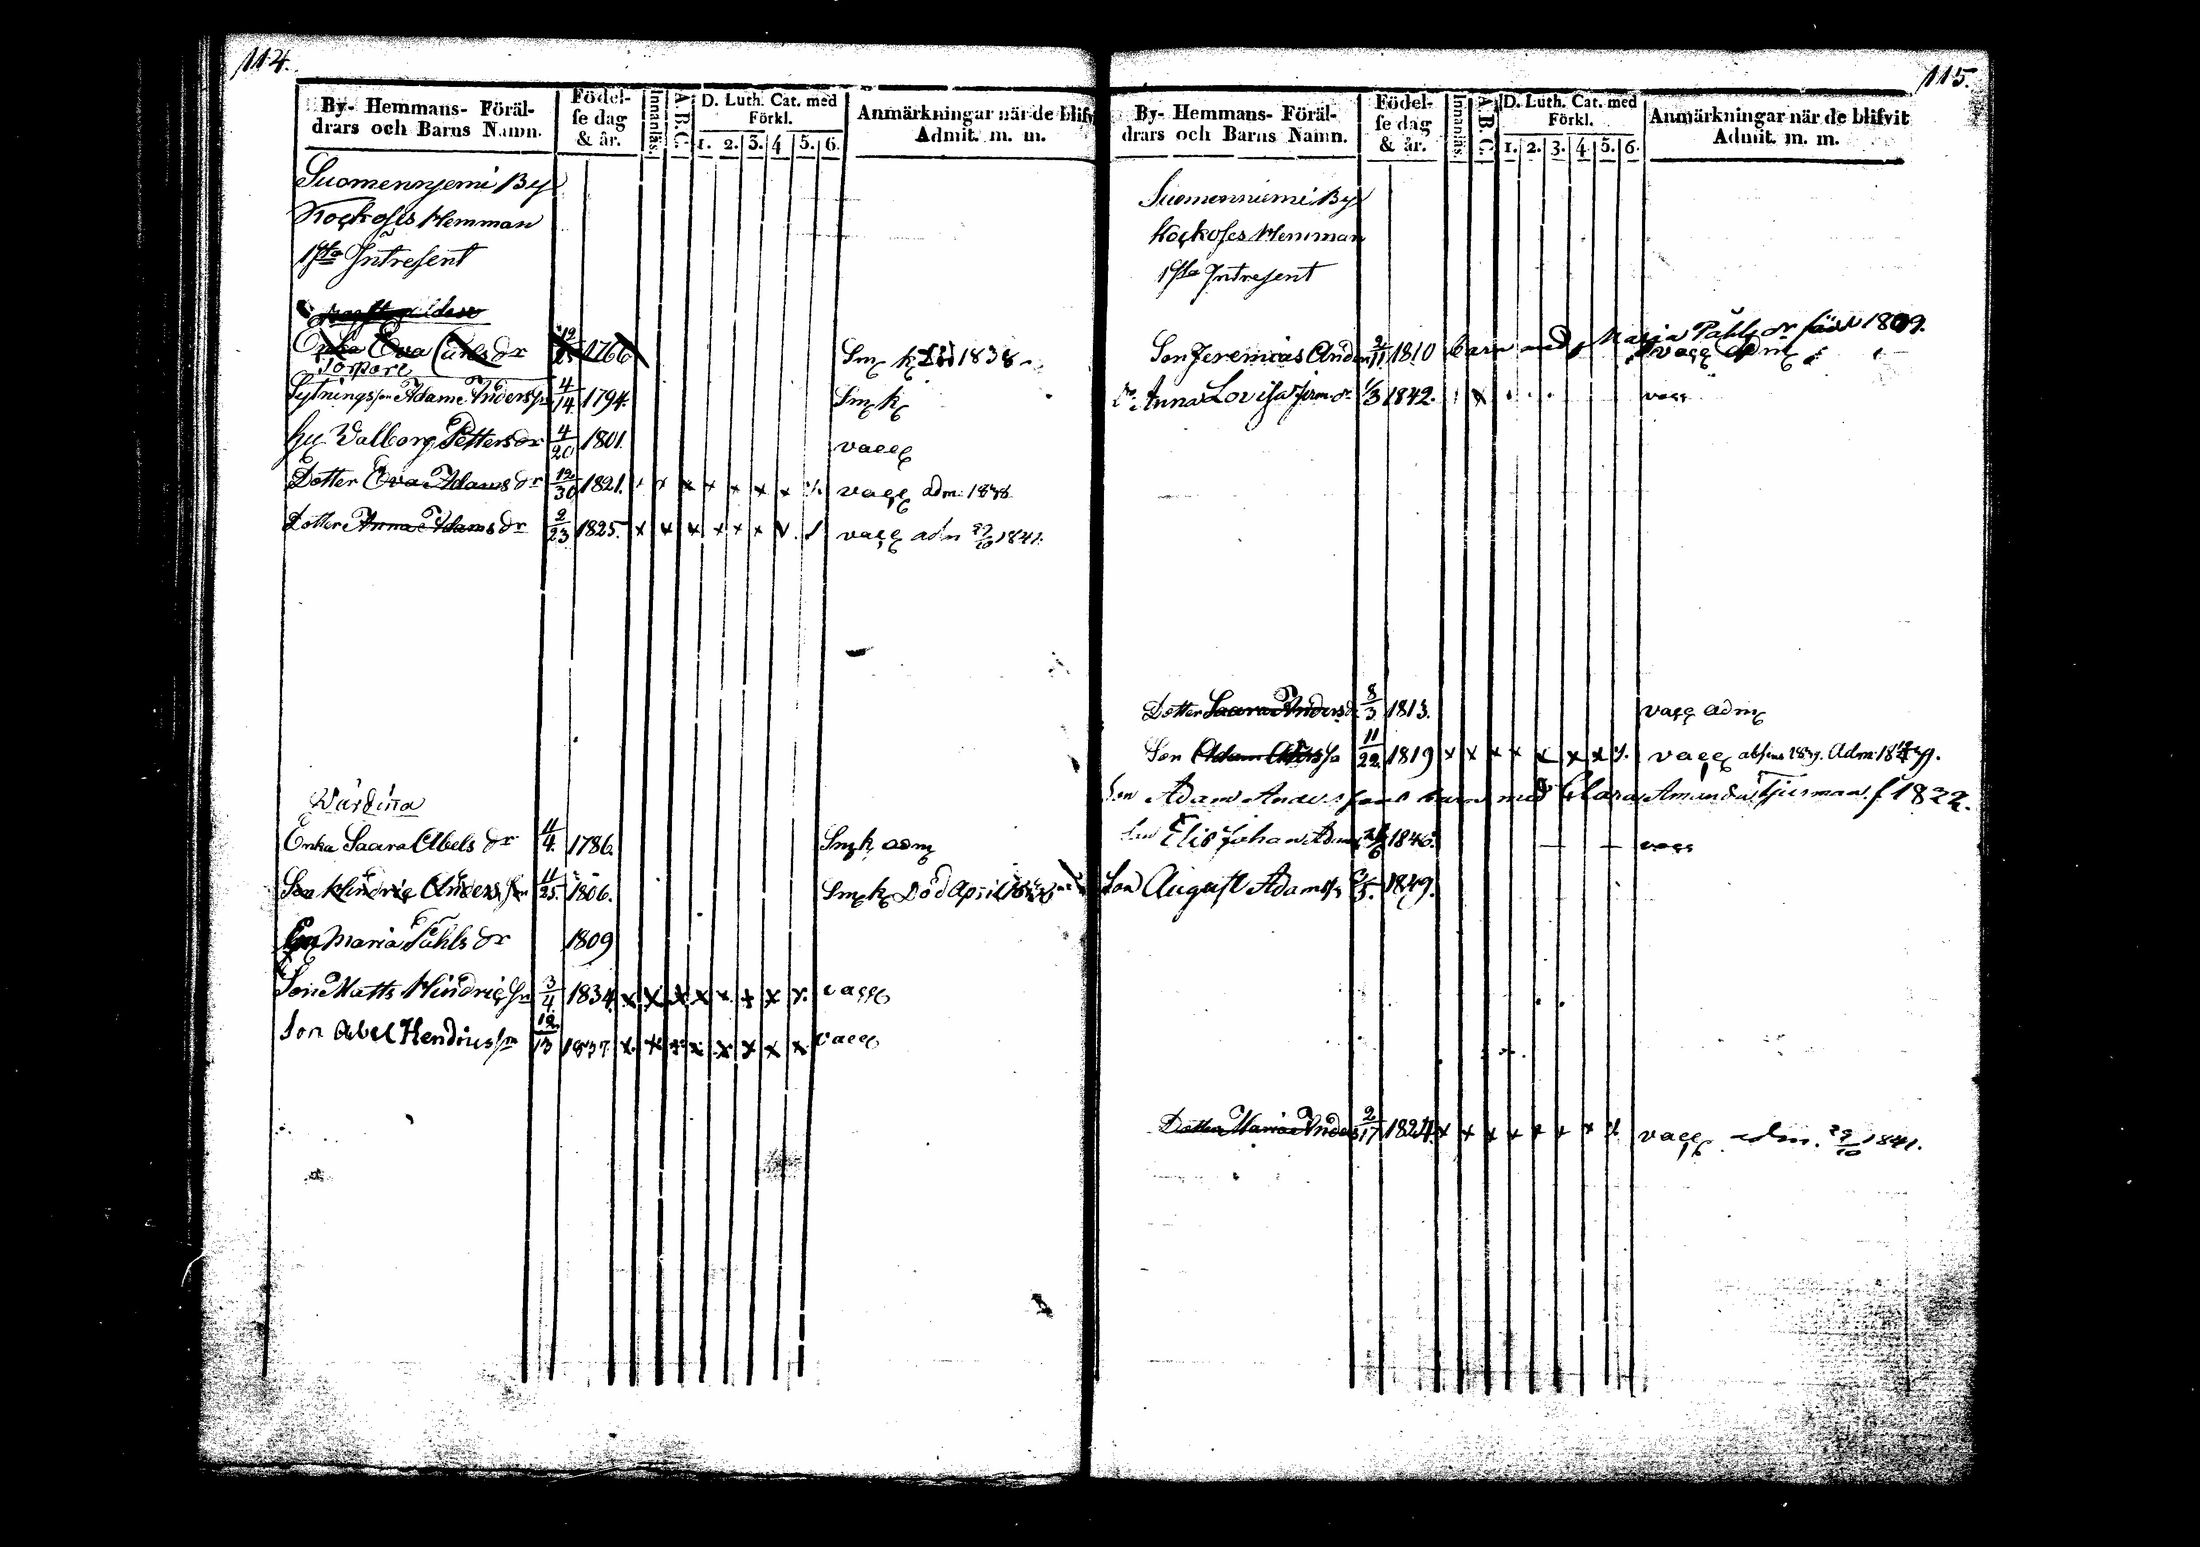 114.
By- Hemmans- Föräl-
drars och Barns Namn.
Födel-
se dag
& år.
Innanläs.
A.B.C.
D. Luth. Cat. med
Förkl.
1. 2. 3. 4 5. 6.
Anmärkningar när de blifv
Admit. m. m.
Suomennjemi By
Kockoses Hemman
1sta Intresent
Enka Eva dr 12/25 1766 Smk 1838
Torpare
Sytnings Adam Anderss 4/14 1794. Smk
Hu Walborg Pettersdr 4/20 1801. vacc
Dotter Eva Adams dr 12/30 1821. x x x x x x vacc adm. 1838
Dotter Anna Adams dr 2/23 1825 x x x x x x vacc adm 29/10 1841.
Värdina
Enka Saara Abels dr 11/4. 1786. Smk adm
Son Hindric Anders son 11/25. 1806. Smk Död April
Maria Påhls dr 1809
Son Matts Hindricsn 3/4 1834 x x x x x x x x vacc
Son Abel Hendricsson 12/13 1837 x x x x x x x x vacc
115.
By- Hemmans- Föräl-
drars och Barns Namn.
Födel-
se dag
& år.
Innanläs
A.B.C.
D. Luth. Cat. med
Förkl.
1. 2. 3. 4. 5. 6.
Anmärkningar när de blifvit
Admit. m. m.
Suomenniemi By
Kockoses Hemman
1sta Intresent
Son Jeremias Anders 2/11 1810 barn med Maria Påhls dr född 1809.
vacc adm
Anna Lovisa Jerem. dr 1/3 1842. vacc
Dotter Saara Anders 8/3 1813. vacc adm
Son Adam 11/22. 1819 x x x x x x x vacc 1839. Adm
Son Adam Andersson barn med Clara Amanda f 1822.
Son Elis Johan Adams 1846. vacc
Son August Adamss 1849.
Dotter Maria Anders 2/17 1824 x x x x x x x vacc adm. 29/10 1841.